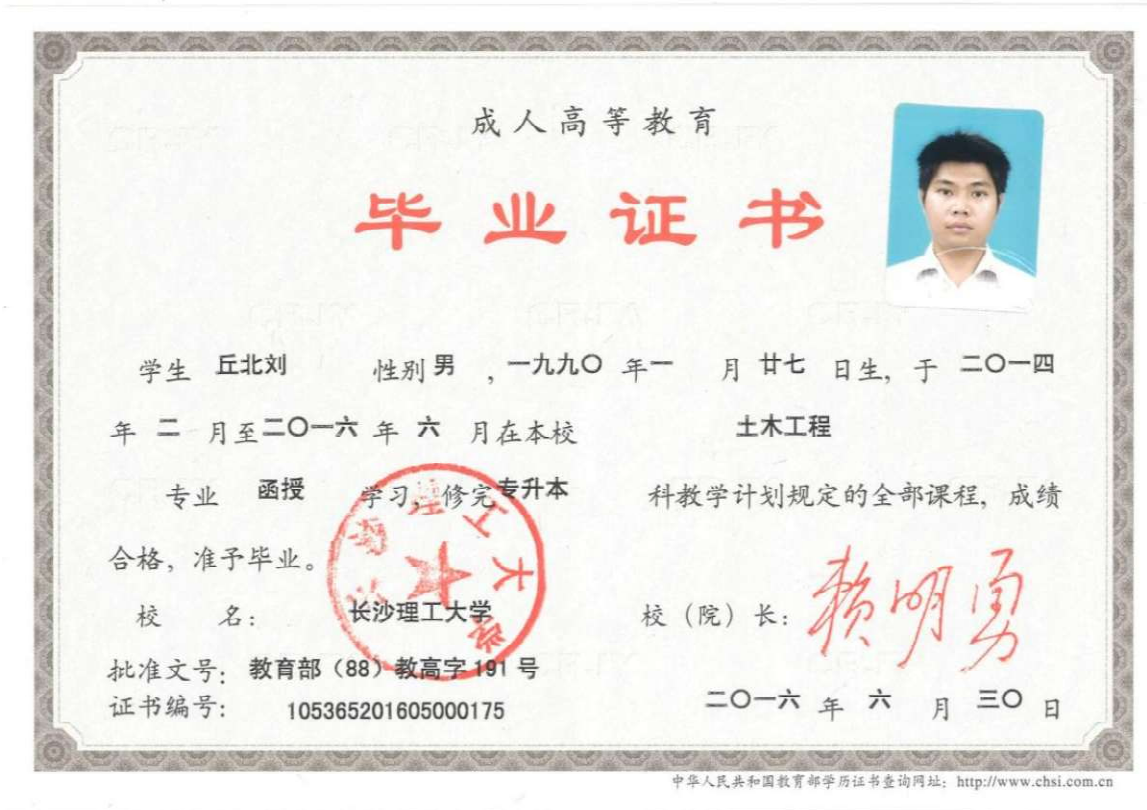 成人高等教育
毕业证书
学生 丘北刘 性别 男 , 一九九〇 年 一 月 廿七 日生, 于 二〇一四
年 二 月至 二〇一六 年 六 月在本校 土木工程
专业 函授 学习, 修完 专升本 科教学计划规定的全部课程, 成绩
合格, 准予毕业。
长沙理工大学
校 名: 长沙理工大学 校(院)长: 赖明勇
批准文号: 教育部(88)教高字191号
证书编号: 105365201605000175 二〇一六 年 六 月 三〇 日
中华人民共和国教育部学历证书查询网址: http://www.chsi.com.cn